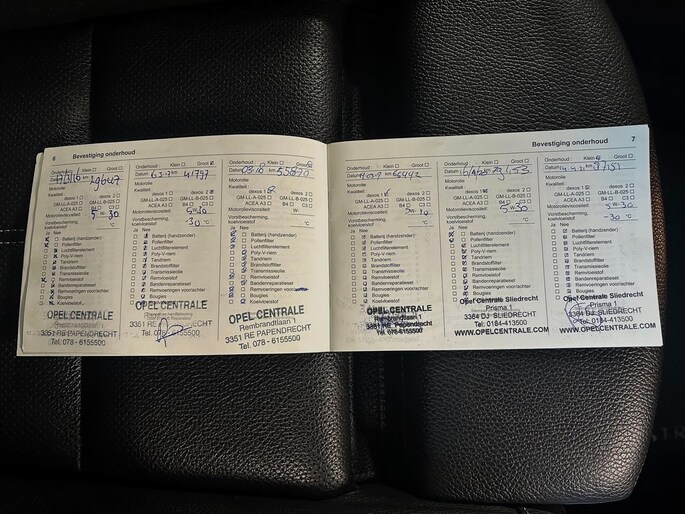 6 Bevestiging onderhoud
Onderhoud: Klein Groot
Datum km
Motorolie
Kwaliteit:
dexos 1 dexos 2
GM-LL-A-025 GM-LL-B-025
ACEA A3 B4 C3
Motorolieviscositeit
5 W 30
Vorstbescherming, koelvloeistof °C
Ja Nee
Batterij (handzender)
Pollenfilter
Luchtfilterelement
Poly-V-riem
Tandriem
Brandstoffilter
Transmissieolie
Remvloeistof
Bandenreparatieset
Remvoeringen voor/achter
Bougies
Koelvloeistof
OPEL CENTRALE
3351 RE PAPENDRECHT
Tel. 078 - 6155500
Onderhoud: Klein Groot
Datum km 41797
Motorolie
Kwaliteit:
dexos 1 dexos 2
GM-LL-A-025 GM-LL-B-025
ACEA A3 B4 C3
Motorolieviscositeit
5W30
Vorstbescherming, koelvloeistof -30 °C
Ja Nee
Batterij (handzender)
Pollenfilter
Luchtfilterelement
Poly-V-riem
Tandriem
Brandstoffilter
Transmissieolie
Remvloeistof
Bandenreparatieset
Remvoeringen voor/achter
Bougies
Koelvloeistof
OPEL CENTRALE
Tel. 078 - 6155500
Onderhoud: Klein Groot
Datum km
Motorolie
Kwaliteit:
dexos 1 dexos 2
GM-LL-A-025 GM-LL-B-025
ACEA A3 B4 C3
Motorolieviscositeit W-
Vorstbescherming, koelvloeistof °C
Ja Nee
Batterij (handzender)
Pollenfilter
Luchtfilterelement
Poly-V-riem
Tandriem
Brandstoffilter
Transmissieolie
Remvloeistof
Bandenreparatieset
Remvoeringen voor/achter
Bougies
Koelvloeistof
OPEL CENTRALE
Rembrandtlaan 1
3351 RE PAPENDRECHT
Tel. 078 - 6155500
Bevestiging onderhoud 7
Onderhoud: Klein Groot
Datum km 66442
Motorolie
Kwaliteit:
dexos 1 dexos 2
GM-LL-A-025 GM-LL-B-025
ACEA A3 B4 C3
Motorolieviscositeit
Vorstbescherming, koelvloeistof °C
Ja Nee
Batterij (handzender)
Pollenfilter
Luchtfilterelement
Poly-V-riem
Tandriem
Brandstoffilter
Transmissieolie
Remvloeistof
Bandenreparatieset
Remvoeringen voor/achter
Bougies
Koelvloeistof
OPEL CENTRALE
Rembrandtlaan 1
3351 RE Papendrecht
Tel. 078-6155500
Onderhoud: Klein Groot
Motorolie
Kwaliteit:
dexos 1 dexos 2
GM-LL-A-025 GM-LL-B-025
ACEA A3 B4 C3
Motorolieviscositeit
5W30
Vorstbescherming, koelvloeistof °C
Ja Nee
Batterij (handzender)
Pollenfilter
Luchtfilterelement
Poly-V-riem
Tandriem
Brandstoffilter
Transmissieolie
Remvloeistof
Bandenreparatieset
Remvoeringen voor/achter
Bougies
Opel Centrale Sliedrecht
Prisma 1
3364 DJ SLIEDRECHT
Tel: 0184-413500
WWW.OPELCENTRALE.COM
Onderhoud: Klein Groot
Datum km
Motorolie
Kwaliteit:
dexos 1 dexos 2
GM-LL-A-025 GM-LL-B-025
ACEA A3 B4 C3
Motorolieviscositeit
5W30
Vorstbescherming, koelvloeistof -30 °C
Ja Nee
Batterij (handzender)
Pollenfilter
Luchtfilterelement
Poly-V-riem
Tandriem
Brandstoffilter
Transmissieolie
Remvloeistof
Bandenreparatieset
Remvoeringen voor/achter
Bougies
Opel Centrale Sliedrecht
Prisma 1
3364 DJ SLIEDRECHT
Tel: 0184-413500
WWW.OPELCENTRALE.COM